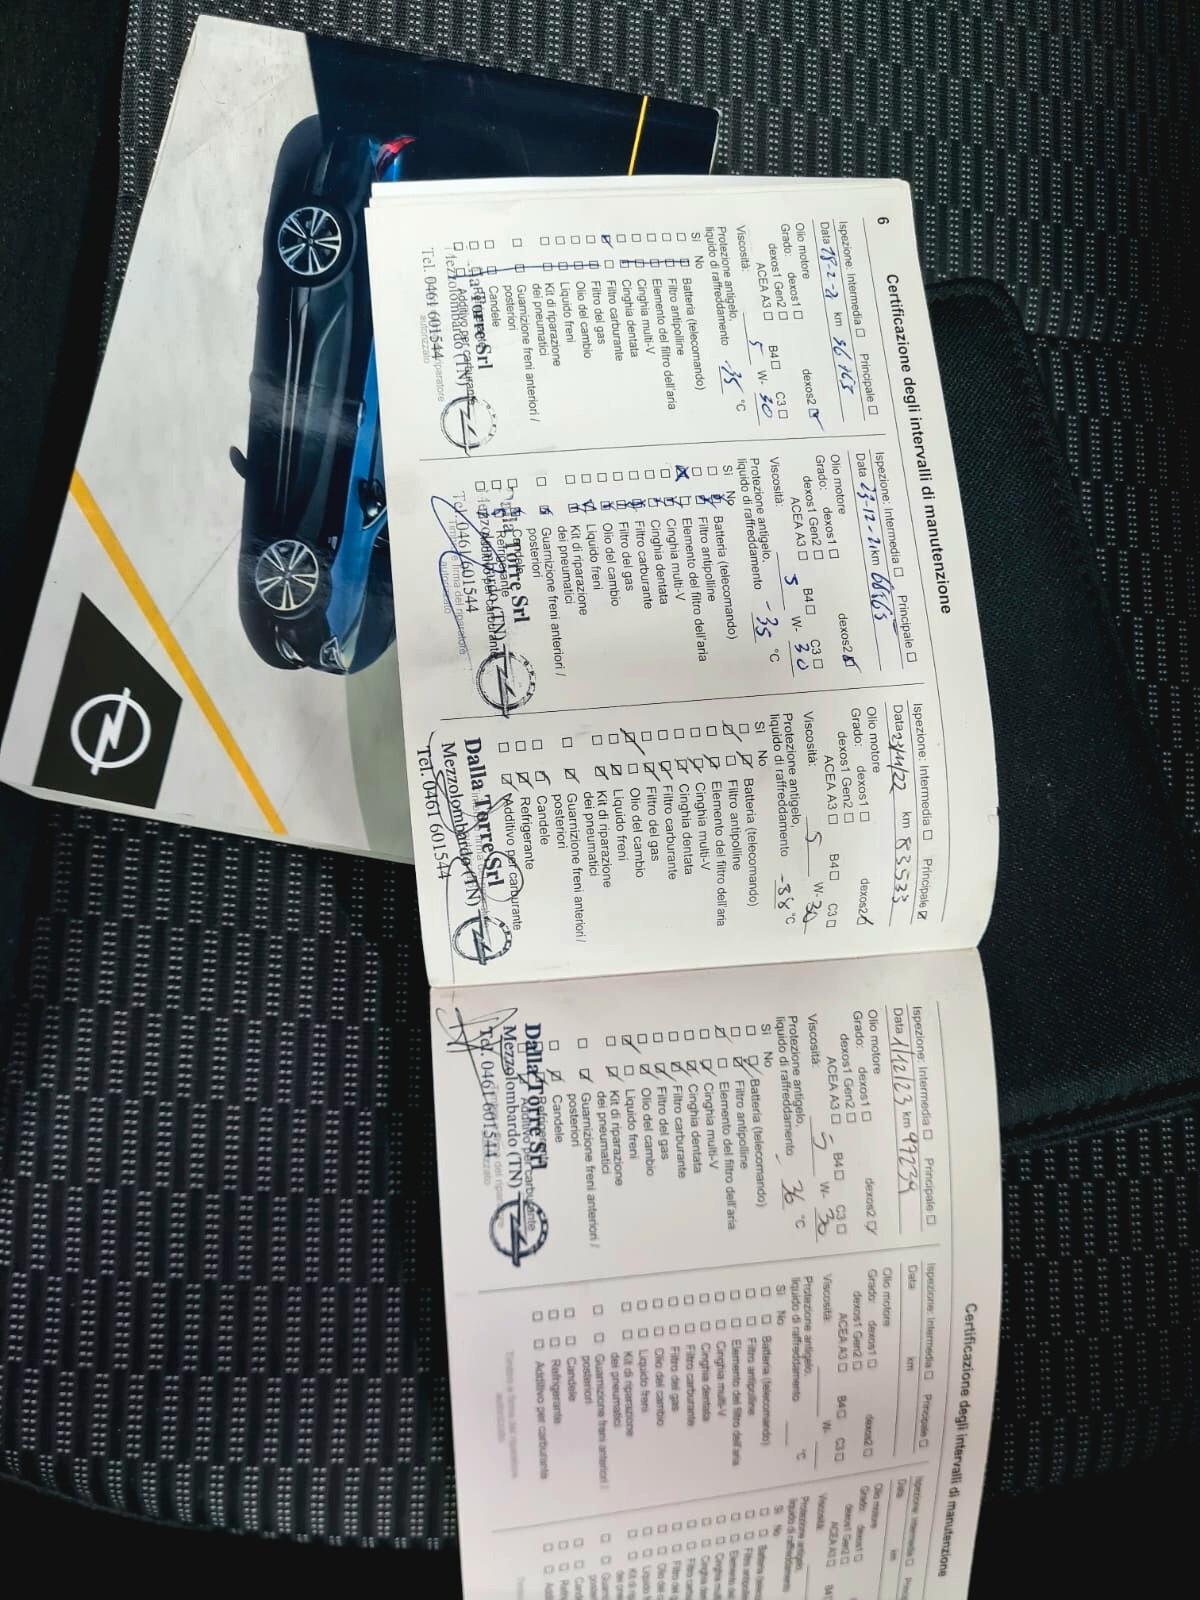 6
Certificazione degli intervalli di manutenzione
Ispezione: Intermedia Principale
Data km 36165
Olio motore
Grado: dexos1 dexos2
dexos1 Gen2
ACEA A3 B4 C3
Viscosità: 5 W- 30
Protezione antigelo,
liquido di raffreddamento -35 °C
Sì No
Batteria (telecomando)
Filtro antipolline
Elemento del filtro dell'aria
Cinghia multi-V
Cinghia dentata
Filtro carburante
Filtro del gas
Olio del cambio
Liquido freni
Kit di riparazione
dei pneumatici
Guarnizione freni anteriori /
posteriori
Candele
Additivo per carburante
Torre Srl
Mezzolombardo (TN)
Tel. 0461 601544
Ispezione: Intermedia Principale
Data 23-12-21 km 66165
Olio motore
Grado: dexos1 dexos2
dexos1 Gen2
ACEA A3 B4 C3
Viscosità: 5 W- 30
Protezione antigelo,
liquido di raffreddamento -35 °C
Sì No
Batteria (telecomando)
Filtro antipolline
Elemento del filtro dell'aria
Cinghia multi-V
Cinghia dentata
Filtro carburante
Filtro del gas
Olio del cambio
Liquido freni
Kit di riparazione
dei pneumatici
Guarnizione freni anteriori /
posteriori
Candele
Refrigerante
Additivo per carburante
Dalla Torre Srl
Mezzolombardo (TN)
Tel. 0461 601544
Ispezione: Intermedia Principale
Data 23/11/22 km 83533
Olio motore
Grado: dexos1 dexos2
dexos1 Gen2
ACEA A3 B4 C3
Viscosità: 5 W- 30
Protezione antigelo,
liquido di raffreddamento -38 °C
Sì No
Batteria (telecomando)
Filtro antipolline
Elemento del filtro dell'aria
Cinghia multi-V
Cinghia dentata
Filtro carburante
Filtro del gas
Olio del cambio
Liquido freni
Kit di riparazione
dei pneumatici
Guarnizione freni anteriori /
posteriori
Candele
Refrigerante
Additivo per carburante
Dalla Torre Srl
Mezzolombardo (TN)
Tel. 0461 601544
Ispezione: Intermedia Principale
Data 1/12/23 km 99239
Olio motore
Grado: dexos1 dexos2
dexos1 Gen2
ACEA A3 B4 C3
Viscosità: 5 W- 30
Protezione antigelo,
liquido di raffreddamento - 36 °C
Sì No
Batteria (telecomando)
Filtro antipolline
Elemento del filtro dell'aria
Cinghia multi-V
Cinghia dentata
Filtro carburante
Filtro del gas
Olio del cambio
Liquido freni
Kit di riparazione
dei pneumatici
Guarnizione freni anteriori /
posteriori
Candele
Refrigerante
Additivo per carburante
Dalla Torre Srl
Mezzolombardo (TN)
Tel. 0461 601544
Certificazione degli intervalli di manutenzione
Ispezione: Intermedia Principale
Data km
Olio motore
Grado: dexos1 dexos2
dexos1 Gen2
ACEA A3 B4 C3
Viscosità: W-
Protezione antigelo,
liquido di raffreddamento °C
Sì No
Batteria (telecomando)
Filtro antipolline
Elemento del filtro dell'aria
Cinghia multi-V
Cinghia dentata
Filtro carburante
Filtro del gas
Olio del cambio
Liquido freni
Kit di riparazione
dei pneumatici
Guarnizione freni anteriori /
posteriori
Candele
Refrigerante
Additivo per carburante
Timbro e firma del riparatore
autorizzato
Ispezione: Intermedia
Data km
Olio motore
Grado: dexos1
dexos1 Gen2
ACEA A3
Viscosità:
Protezione antigelo,
liquido di raffreddamento
Sì No